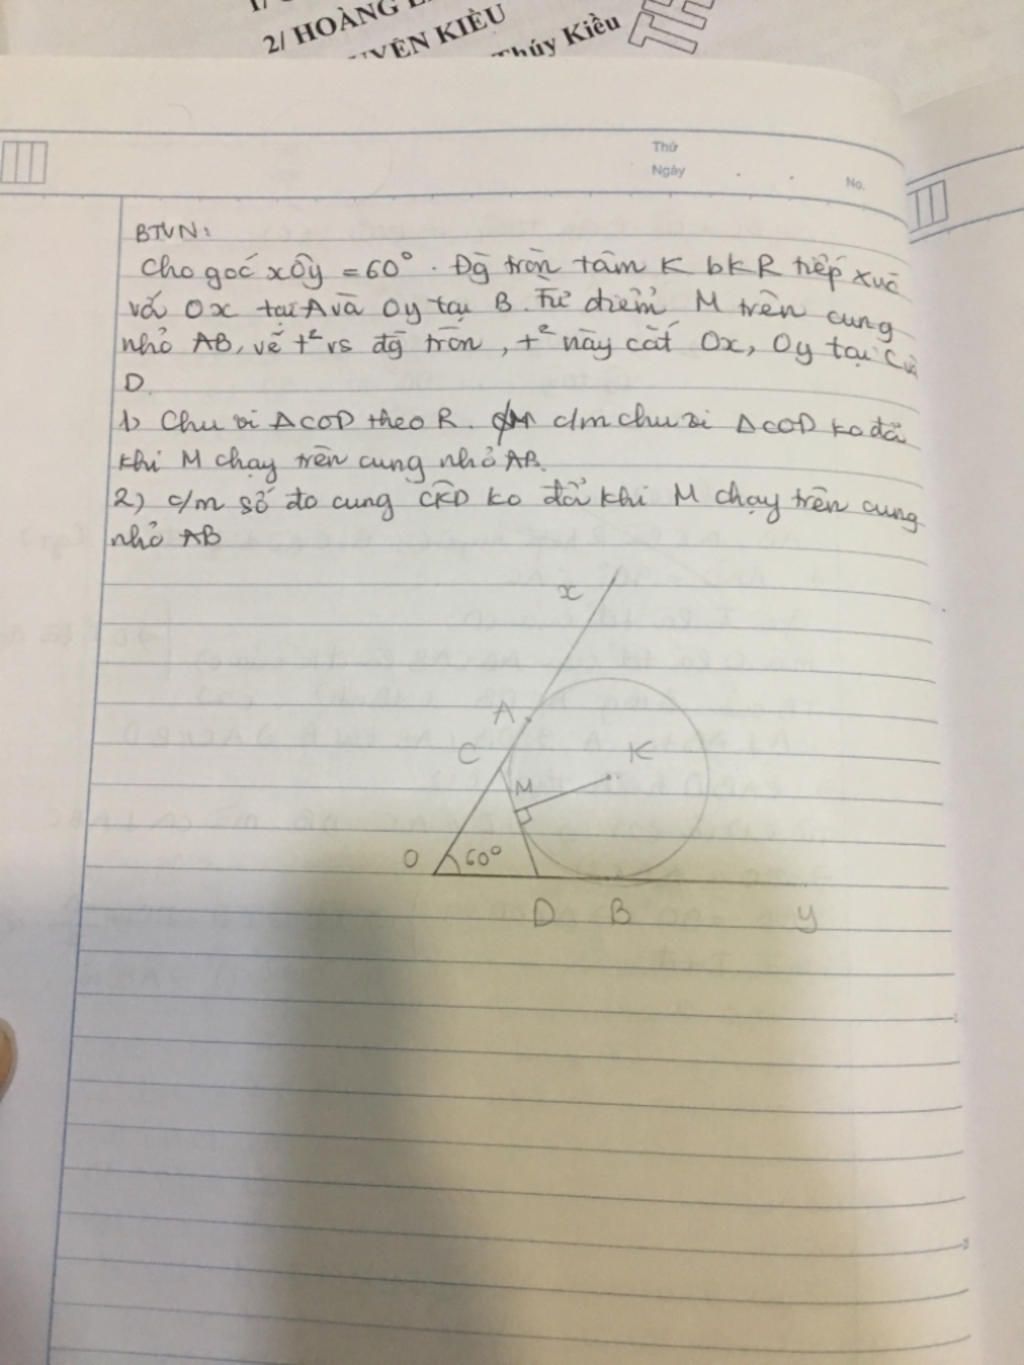 2/ HOÀNG
UYÊN KIỀU
Thúy Kiều
TH
Thứ
Ngày . .
No.
BTVN:
Cho góc xÔy = 60°. Đg tròn tâm K bk R tiếp xúc
với Ox tại A và Oy tại B. Từ điểm M trên cung
nhỏ AB, vẽ t² vs đg tròn, t² này cắt Ox, Oy tại C và
D.
1) Chu vi ΔCOD theo R. c/m chu vi ΔCOD ko đổi
khi M chạy trên cung nhỏ AB.
2) c/m số đo cung CKD ko đổi khi M chạy trên cung
nhỏ AB
x
A
C
K
M
O 60°
D B y